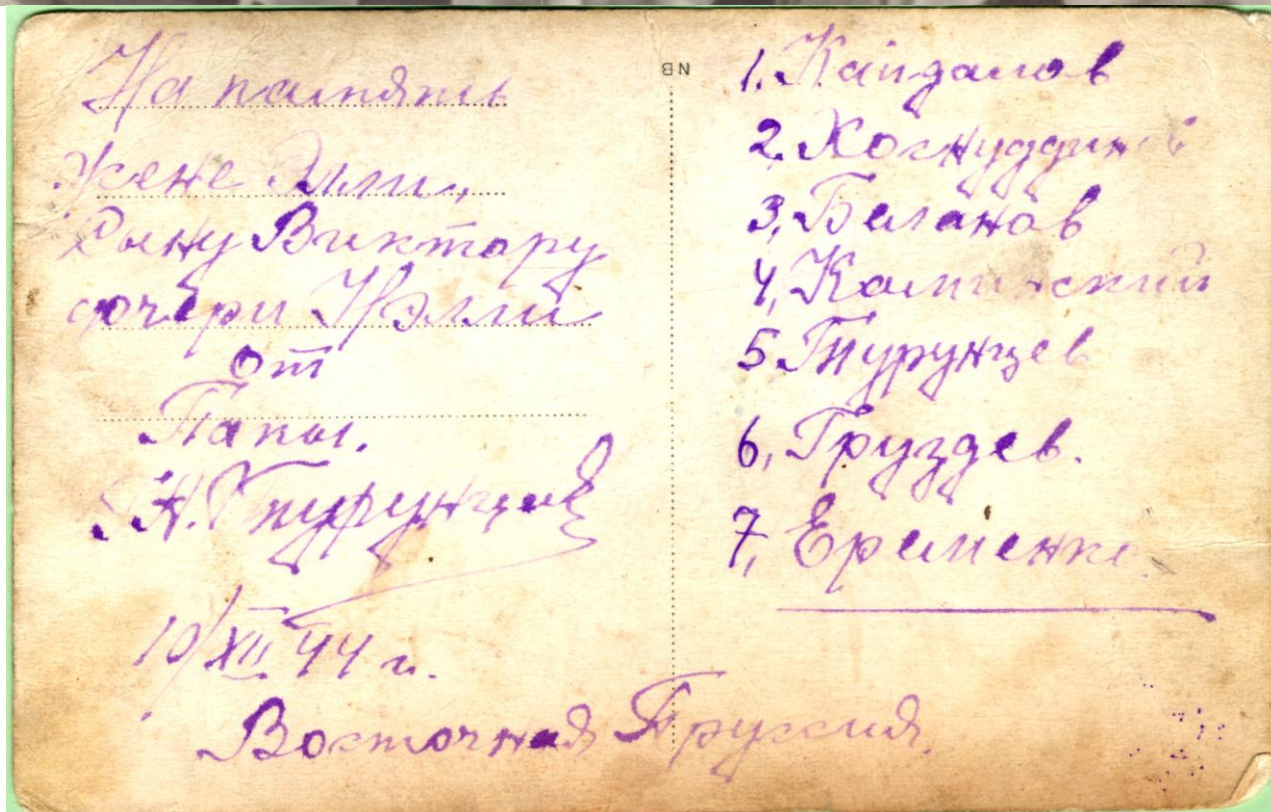 На память
Жене Элли,
Сыну Виктору
дочери Нэлли
от
Папы.
Н. Турунцев
10/XII 44 г.
Восточная Пруссия.
NB
1, Кайдалов
2, Хоснуддинов
3, Баланов
4, Каминский
5. Турунцев
6, Груздев.
7, Еременко.